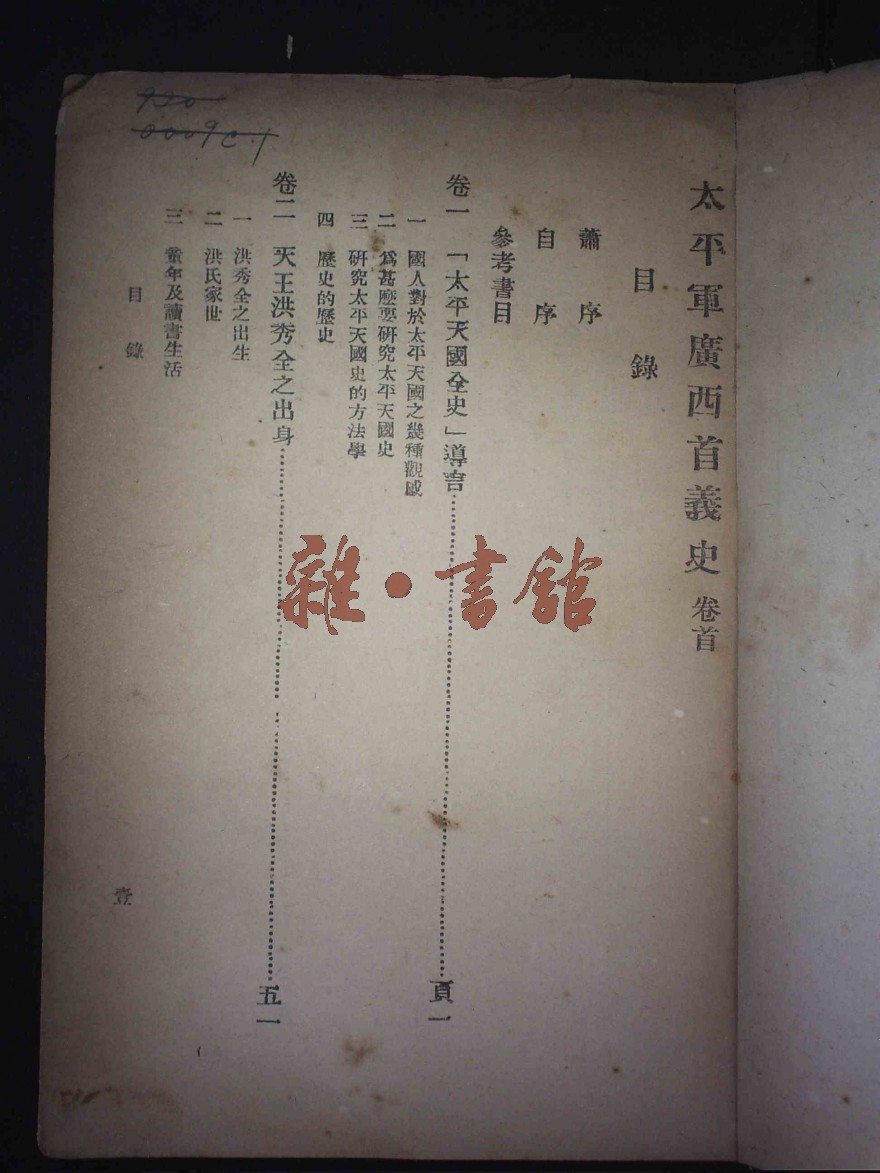 太平軍廣西首義史 卷首
目錄
蕭序
自序
參考書目
卷一 「太平天國全史」導言……頁一
一 國人對於太平天國之幾種觀感
二 爲甚麽要研究太平天國史
三 研究太平天國史的方法學
四 歷史的歷史
卷二 天王洪秀全之出身……五一
一 洪秀全之出生
二 洪氏家世
三 童年及讀書生活
目錄
壹
920
0009 c.1
雜·書館